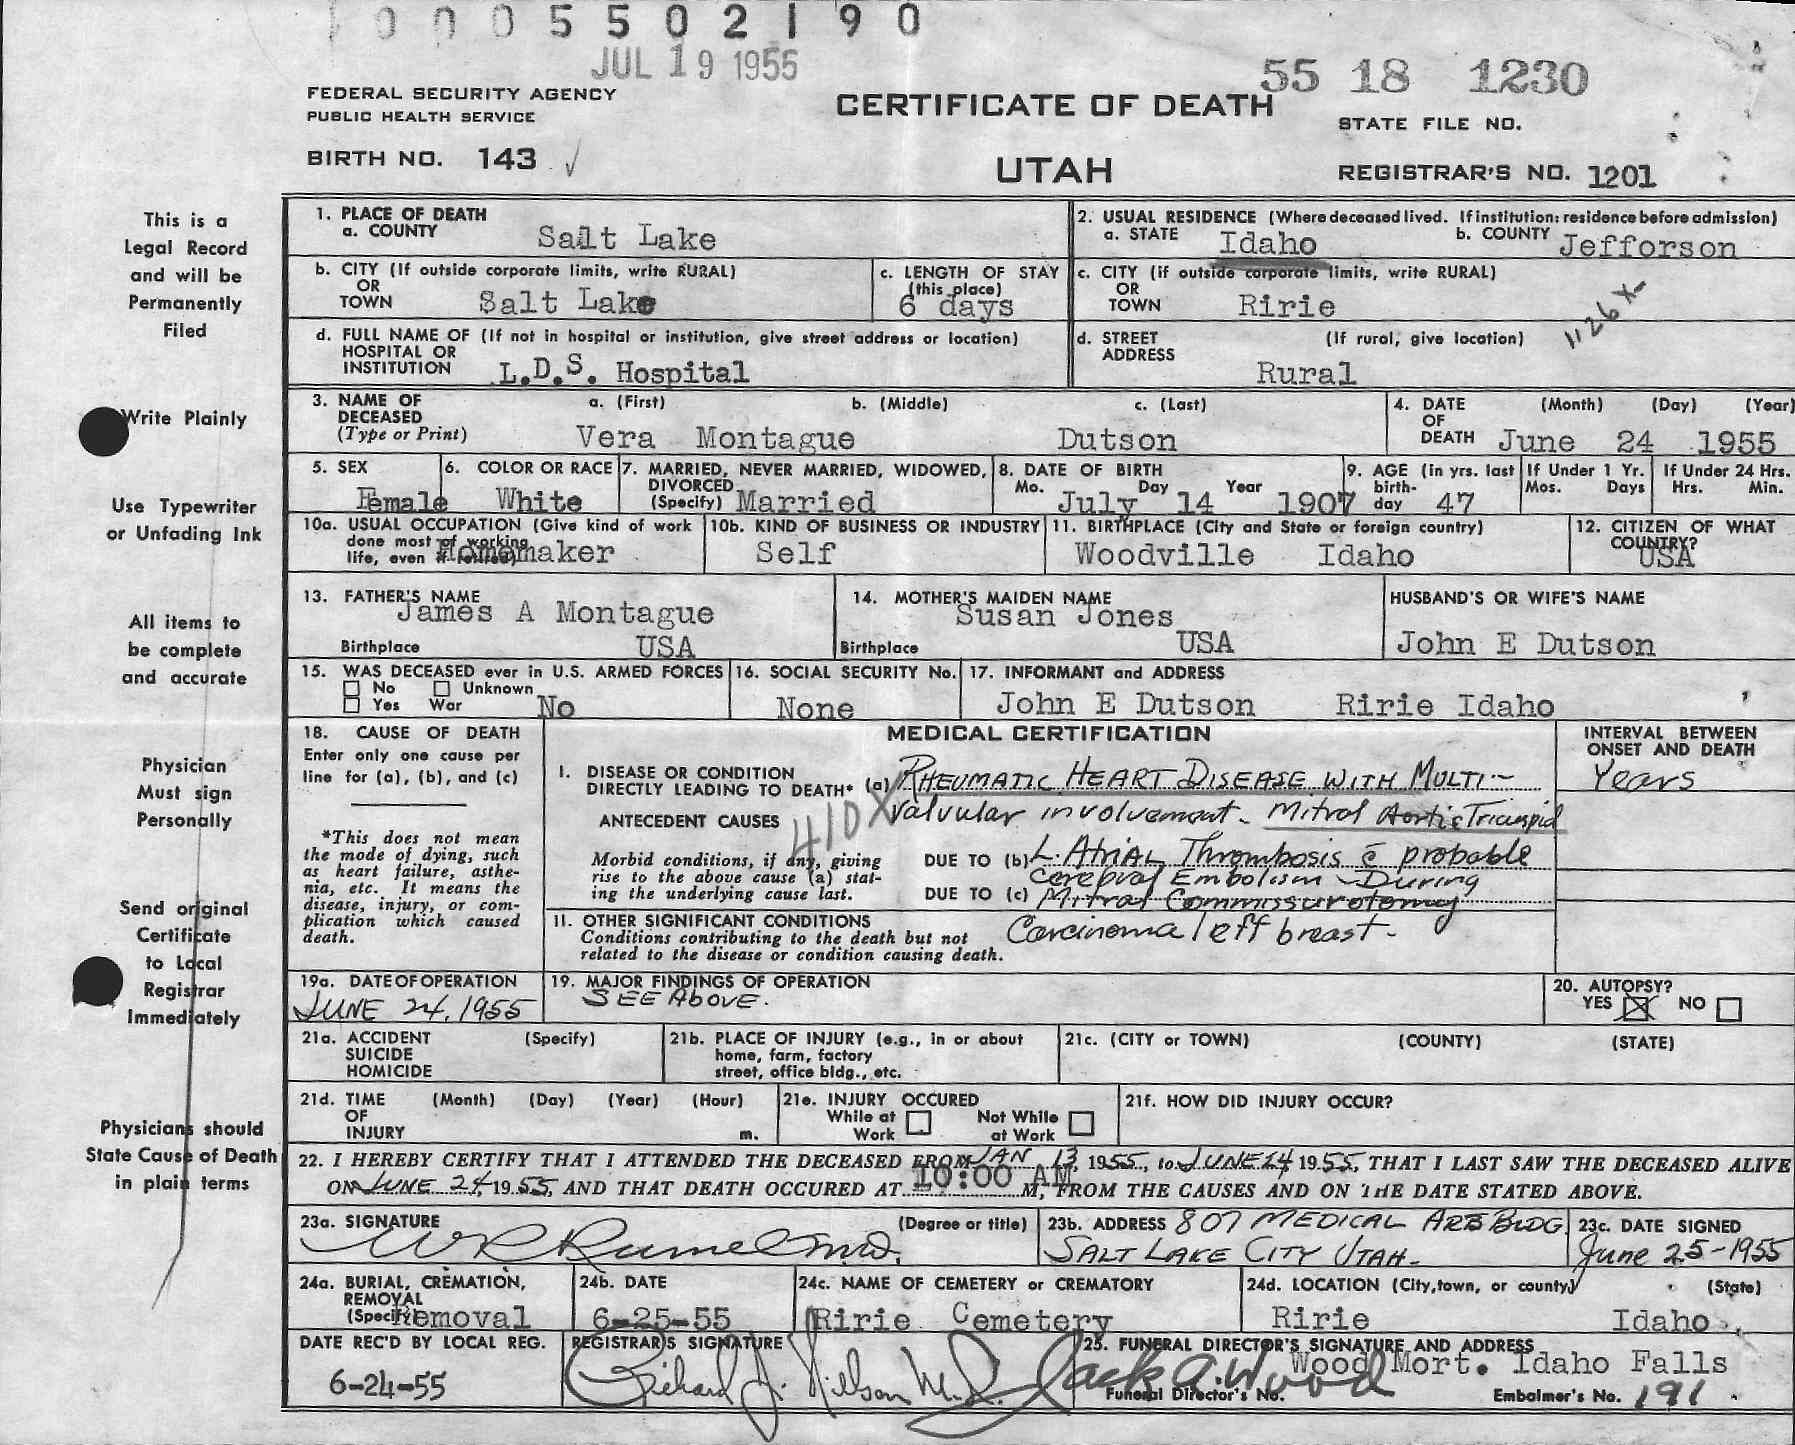 1 0 0 0 5 5 0 2 1 9 0
JUL 19 1955
55 18 1230
FEDERAL SECURITY AGENCY
PUBLIC HEALTH SERVICE
CERTIFICATE OF DEATH
STATE FILE NO.
BIRTH NO. 143 ✓
UTAH
REGISTRAR'S NO. 1201
This is a
Legal Record
and will be
Permanently
Filed
Write Plainly
Use Typewriter
or Unfading Ink
All items to
be complete
and accurate
Physician
Must sign
Personally
Send original
Certificate
to Local
Registrar
Immediately
Physicians should
State Cause of Death
in plain terms
1. PLACE OF DEATH
a. COUNTY Salt Lake
2. USUAL RESIDENCE (Where deceased lived. If institution: residence before admission)
a. STATE Idaho b. COUNTY Jefforson
b. CITY (If outside corporate limits, write RURAL)
OR
TOWN Salt Lake
c. LENGTH OF STAY
(this place)
6 days
c. CITY (if outside corporate limits, write RURAL)
OR
TOWN Ririe
1126 X-
d. FULL NAME OF (If not in hospital or institution, give street address or location)
HOSPITAL OR
INSTITUTION L.D.S. Hospital
d. STREET (If rural, give location)
ADDRESS
Rural
3. NAME OF a. (First) b. (Middle) c. (Last)
DECEASED
(Type or Print) Vera Montague Dutson
4. DATE (Month) (Day) (Year)
OF
DEATH June 24 1955
5. SEX
Female
6. COLOR OR RACE
White
7. MARRIED, NEVER MARRIED, WIDOWED,
DIVORCED
(Specify) Married
8. DATE OF BIRTH
Mo. Day Year
July 14 1907
9. AGE (in yrs. last
birth-
day 47
If Under 1 Yr.
Mos. Days
If Under 24 Hrs.
Hrs. Min.
10a. USUAL OCCUPATION (Give kind of work
done most of working
life, even if retired) Homemaker
10b. KIND OF BUSINESS OR INDUSTRY
Self
11. BIRTHPLACE (City and State or foreign country)
Woodville Idaho
12. CITIZEN OF WHAT
COUNTRY?
USA
13. FATHER'S NAME
James A Montague
Birthplace USA
14. MOTHER'S MAIDEN NAME
Susan Jones
Birthplace USA
HUSBAND'S OR WIFE'S NAME
John E Dutson
15. WAS DECEASED ever in U.S. ARMED FORCES
No Unknown
Yes War No
16. SOCIAL SECURITY No.
None
17. INFORMANT and ADDRESS
John E Dutson Ririe Idaho
18. CAUSE OF DEATH
Enter only one cause per
line for (a), (b), and (c)
*This does not mean
the mode of dying, such
as heart failure, asthe-
nia, etc. It means the
disease, injury, or com-
plication which caused
death.
MEDICAL CERTIFICATION
INTERVAL BETWEEN
ONSET AND DEATH
I. DISEASE OR CONDITION
DIRECTLY LEADING TO DEATH* (a) RHEUMATIC HEART DISEASE WITH MULTI-
Years
ANTECEDENT CAUSES 410X Valvular involvement - Mitral Aortic Tricuspid
Morbid conditions, if any, giving
rise to the above cause (a) stat-
ing the underlying cause last.
DUE TO (b) L. Atrial Thrombosis c̄ probable
Cerebral Embolism - During
DUE TO (c) Mitral Commissurotomy
II. OTHER SIGNIFICANT CONDITIONS
Conditions contributing to the death but not
related to the disease or condition causing death.
Carcinoma left breast.
19a. DATE OF OPERATION
JUNE 24, 1955
19. MAJOR FINDINGS OF OPERATION
SEE ABOVE.
20. AUTOPSY?
YES X NO
21a. ACCIDENT (Specify)
SUICIDE
HOMICIDE
21b. PLACE OF INJURY (e.g., in or about
home, farm, factory
street, office bldg., etc.
21c. (CITY or TOWN) (COUNTY) (STATE)
21d. TIME (Month) (Day) (Year) (Hour)
OF
INJURY m.
21e. INJURY OCCURED
While at Work Not While at Work
21f. HOW DID INJURY OCCUR?
22. I HEREBY CERTIFY THAT I ATTENDED THE DECEASED FROM JAN 13, 1955, to JUNE 24, 1955, THAT I LAST SAW THE DECEASED ALIVE
ON JUNE 24, 1955, AND THAT DEATH OCCURED AT 10:00 AM M, FROM THE CAUSES AND ON THE DATE STATED ABOVE.
23a. SIGNATURE (Degree or title)
23b. ADDRESS 807 MEDICAL ARTS BLDG
SALT LAKE CITY UTAH-
23c. DATE SIGNED
June 25-1955
24a. BURIAL, CREMATION,
REMOVAL
(Specify) Removal
24b. DATE
6-25-55
24c. NAME OF CEMETERY or CREMATORY
Ririe Cemetery
24d. LOCATION (City, town, or county) (State)
Ririe Idaho
DATE REC'D BY LOCAL REG.
6-24-55
REGISTRAR'S SIGNATURE
Richard J. Nilson M.D.
25. FUNERAL DIRECTOR'S SIGNATURE AND ADDRESS
Jack A. Wood Wood Mort. Idaho Falls
Funeral Director's No. Embalmer's No. 191